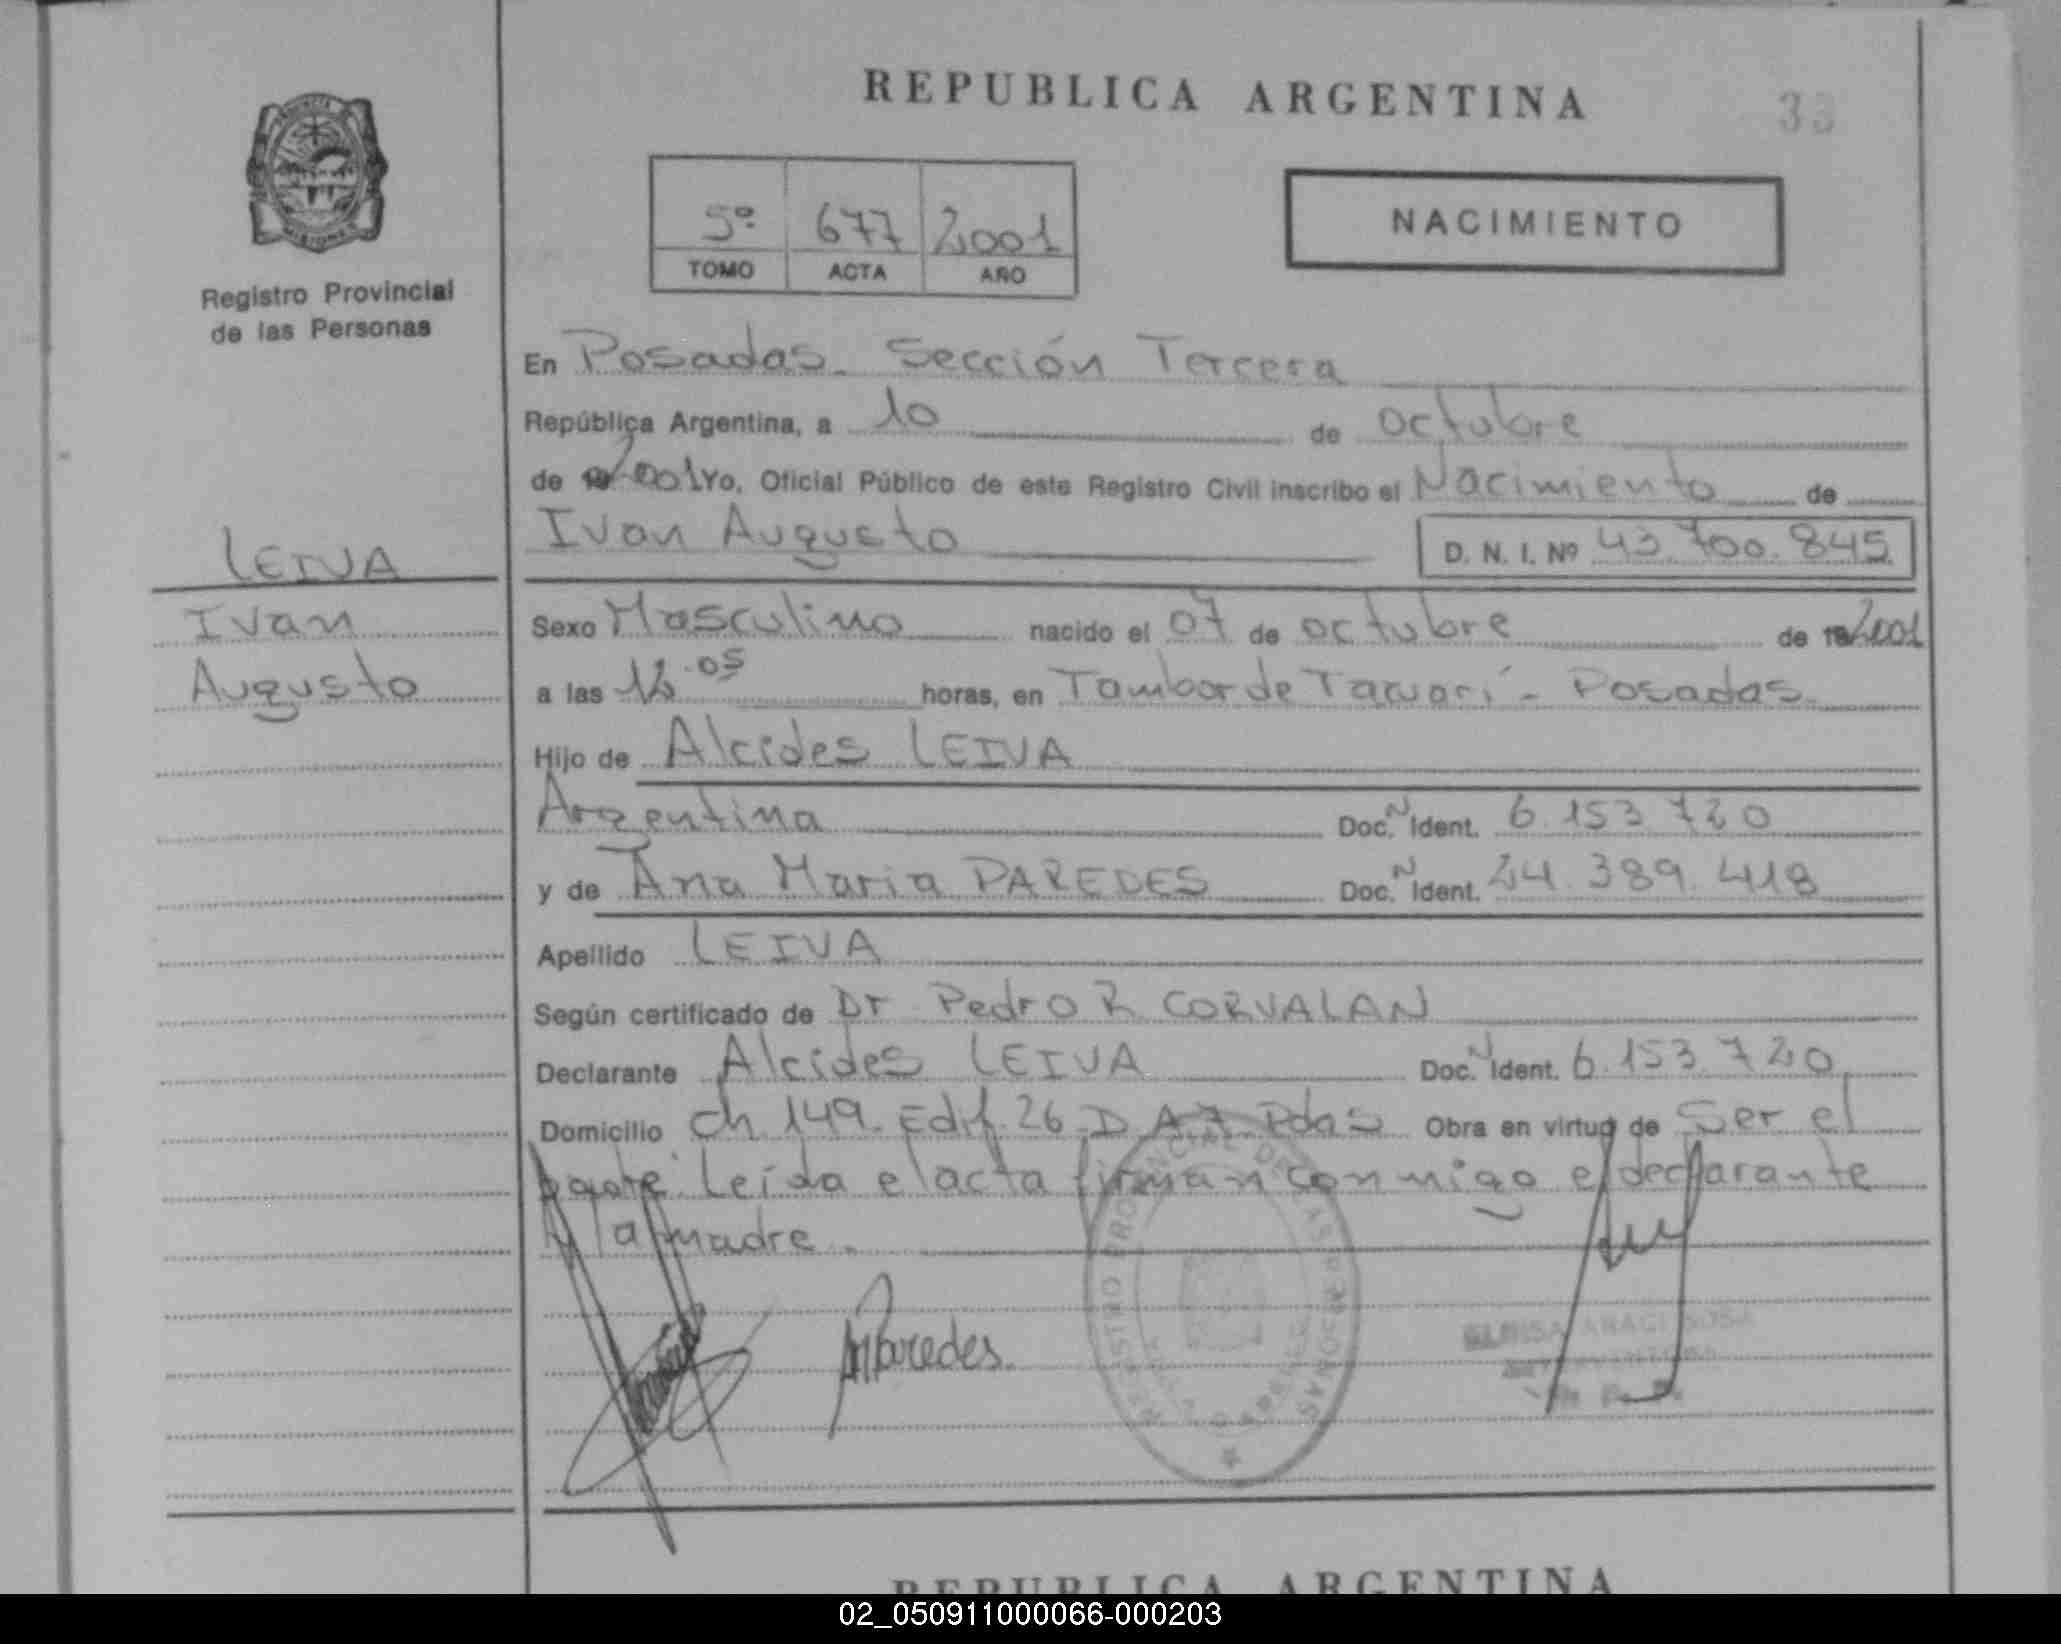 REPUBLICA ARGENTINA
33
NACIMIENTO
5º 677 2001
TOMO ACTA AÑO
Registro Provincial
de las Personas
En Posadas. Sección Tercera
República Argentina, a 10 de octubre
de 2001 Yo, Oficial Público de este Registro Civil inscribo el Nacimiento de
Ivan Augusto D. N. I. Nº 43.700.845
LEIVA
Ivan
Augusto
Sexo Masculino nacido el 07 de octubre de 2001
a las 12.05 horas, en Tambor de Tacuarí - Posadas.
Hijo de Alcides LEIVA
Argentina Doc. N Ident. 6.153.720
y de Ana Maria PAREDES Doc. N Ident. 24.389.418
Apellido LEIVA
Según certificado de Dr Pedro R CORVALAN
Declarante Alcides LEIVA Doc. N Ident. 6.153.720
Domicilio ch 149. Edif. 26. D A 7. Pdas Obra en virtud de Ser el
padre. Leída el acta firman conmigo el declarante
y la madre.
Paredes.
REGISTRO PROVINCIAL DE LAS PERSONAS
REPUBLICA ARGENTINA
02_050911000066-000203